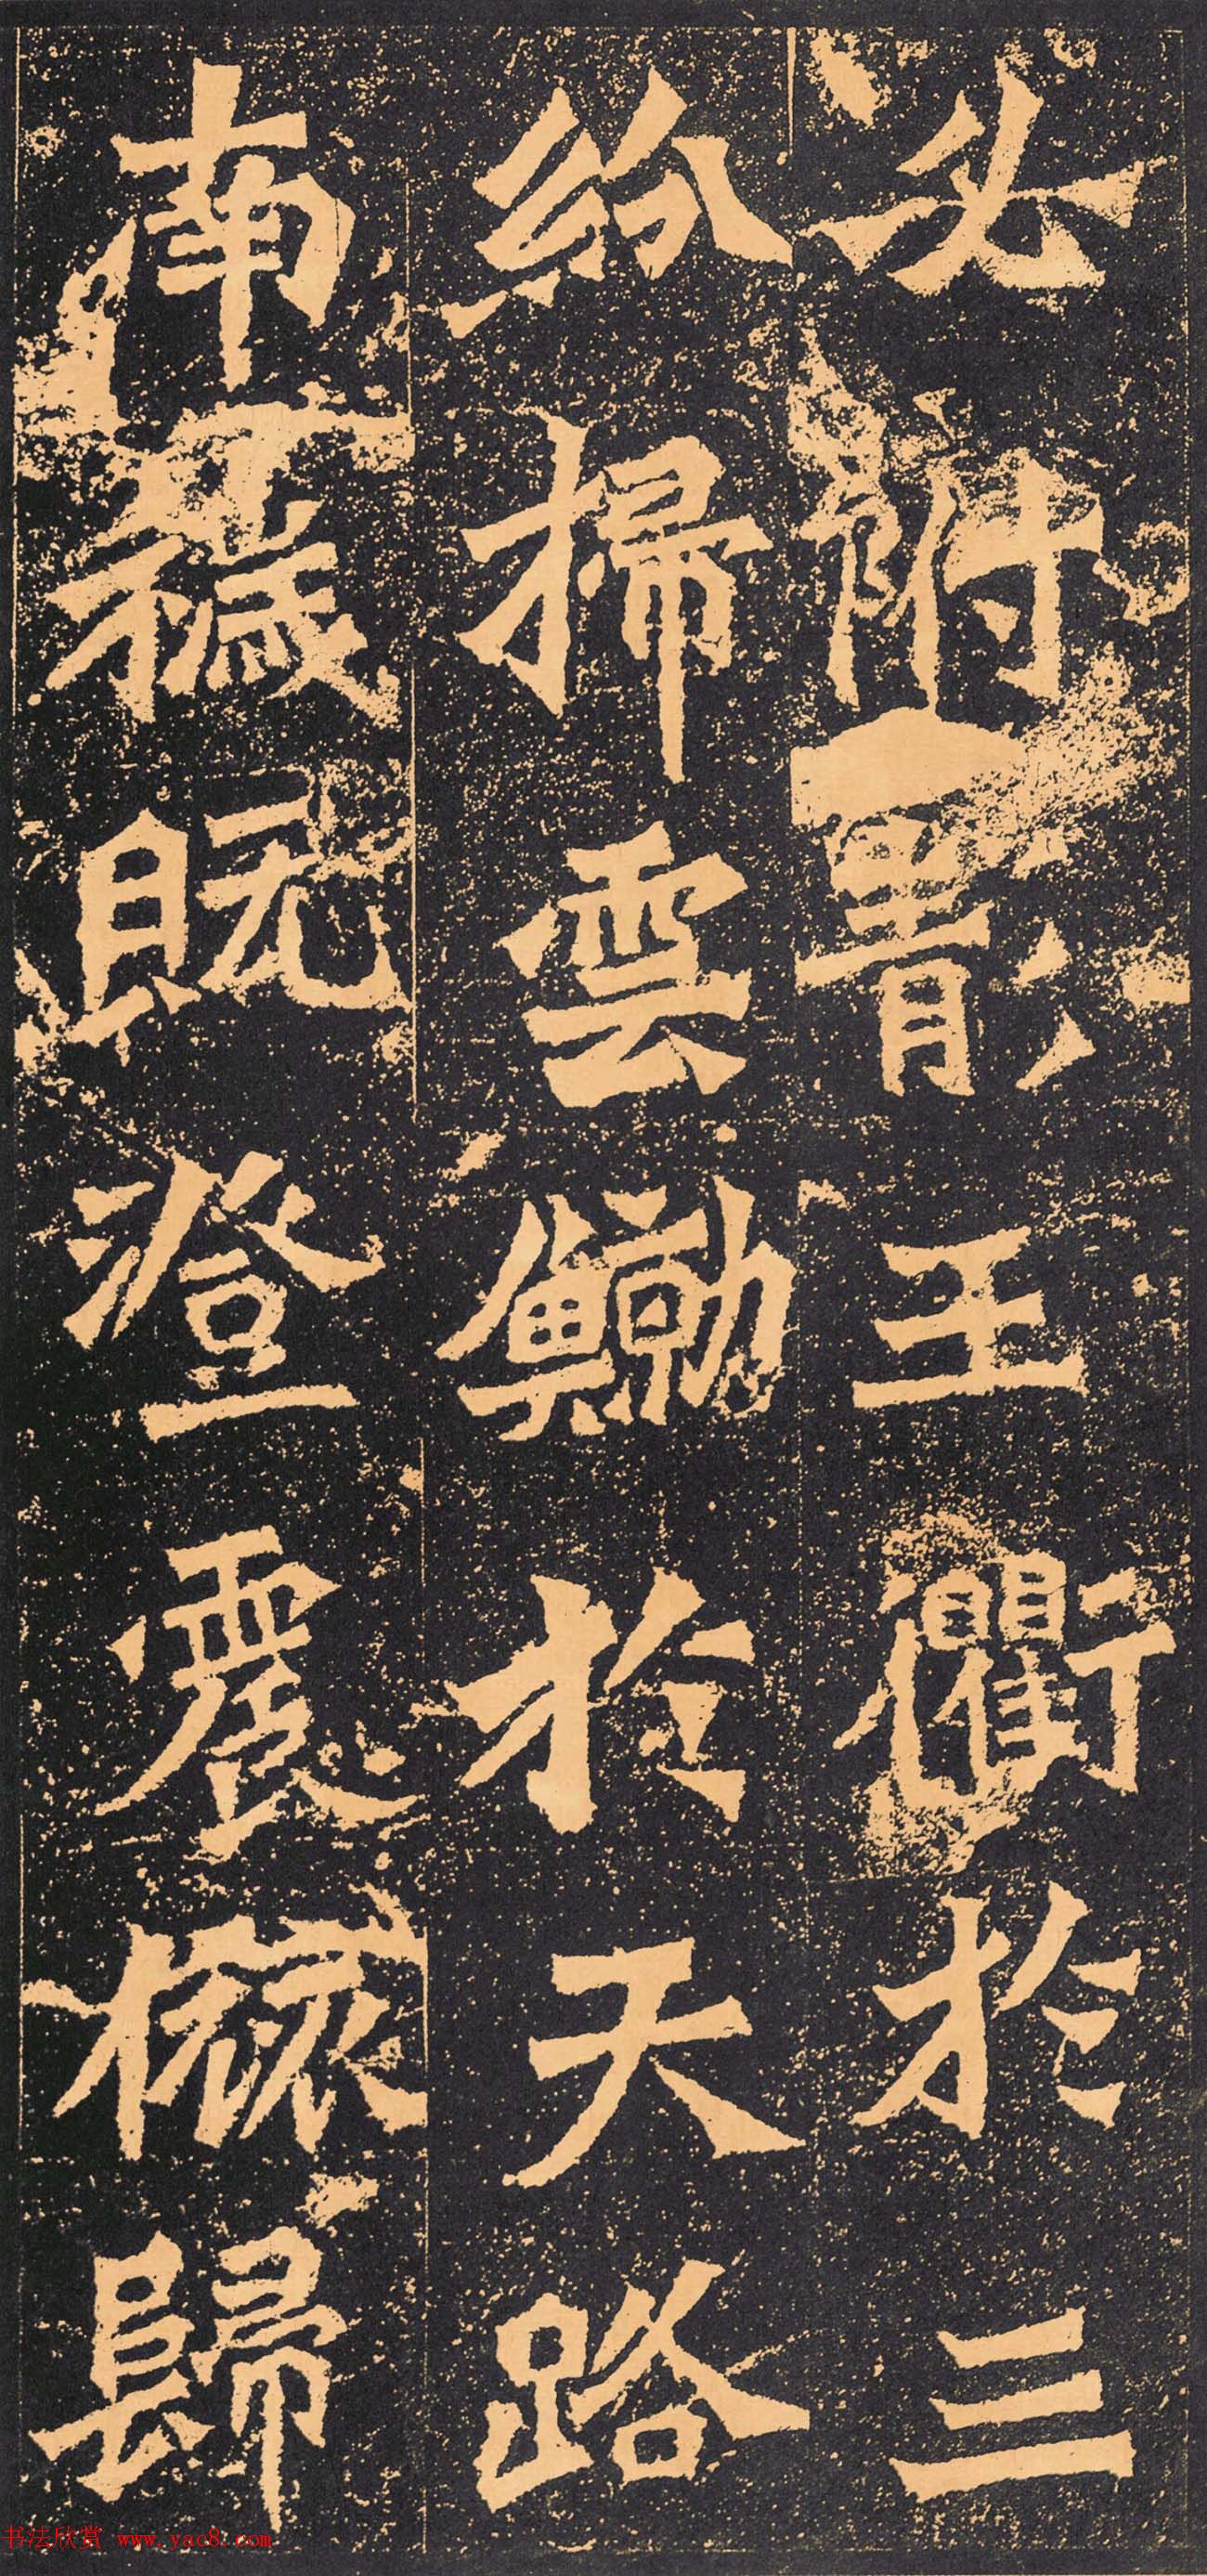 必附清王衢於三
紛掃雲鯨於天路
南穢既澄震旅歸
书法欣赏 www.yac8.com